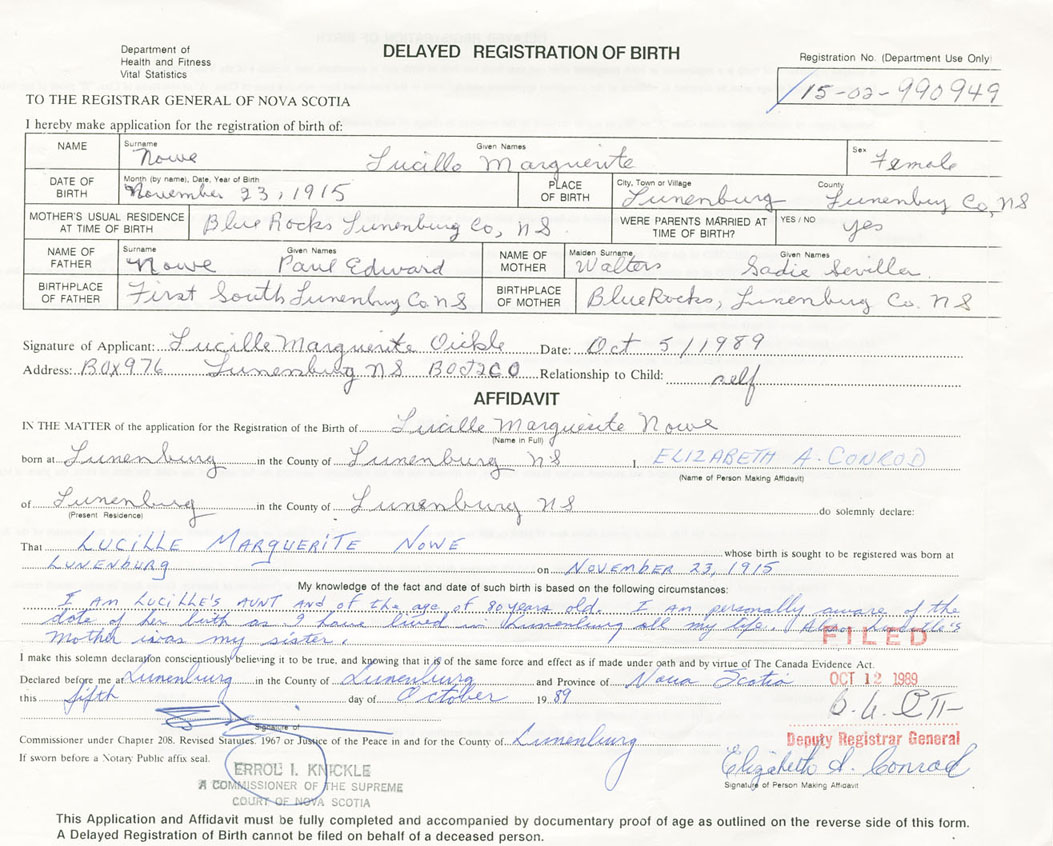 Department of
Health and Fitness
Vital Statistics
DELAYED REGISTRATION OF BIRTH
Registration No. (Department Use Only)
15-02-990949
TO THE REGISTRAR GENERAL OF NOVA SCOTIA
I hereby make application for the registration of birth of:
NAME Surname Nowe Given Names Lucille Marguerite Sex Female
DATE OF BIRTH Month (by name), Date, Year of Birth November 23, 1915 PLACE OF BIRTH City, Town or Village Lunenburg County Lunenburg Co, NS
MOTHER'S USUAL RESIDENCE AT TIME OF BIRTH Blue Rocks Lunenburg Co, NS. WERE PARENTS MARRIED AT TIME OF BIRTH? YES / NO yes
NAME OF FATHER Surname Nowe Given Names Paul Edward NAME OF MOTHER Maiden Surname Walters Given Names Sadie Seviller
BIRTHPLACE OF FATHER First South Lunenburg Co. NS BIRTHPLACE OF MOTHER Blue Rocks, Lunenburg Co. NS
Signature of Applicant: Lucille Marguerite Oickle Date: Oct 5/1989
Address: Box 976 Lunenburg NS B0J2C0 Relationship to Child: self
AFFIDAVIT
IN THE MATTER of the application for the Registration of the Birth of Lucille Marguerite Nowe
(Name in Full)
born at Lunenburg in the County of Lunenburg NS I, ELIZABETH A. CONROD
(Name of Person Making Affidavit)
of Lunenburg in the County of Lunenburg NS do solemnly declare:
(Present Residence)
That LUCILLE MARGUERITE NOWE whose birth is sought to be registered was born at
LUNENBURG on NOVEMBER 23, 1915
My knowledge of the fact and date of such birth is based on the following circumstances:
I AM LUCILLE'S AUNT and of the age of 80 years old. I am personally aware of the
date of her birth as I have lived in Lunenburg all my life. Also Lucille's
mother was my sister.
FILED
I make this solemn declaration conscientiously believing it to be true, and knowing that it is of the same force and effect as if made under oath and by virtue of The Canada Evidence Act.
Declared before me at Lunenburg in the County of Lunenburg and Province of Nova Scotia OCT 12 1989
this fifth day of October 19 89
Signature of
Deputy Registrar General
Commissioner under Chapter 208. Revised Statutes. 1967 or Justice of the Peace in and for the County of Lunenburg
If sworn before a Notary Public affix seal.
Elizabeth A. Conrod
Signature of Person Making Affidavit
ERROL I. KNICKLE
A COMMISSIONER OF THE SUPREME
COURT OF NOVA SCOTIA
This Application and Affidavit must be fully completed and accompanied by documentary proof of age as outlined on the reverse side of this form.
A Delayed Registration of Birth cannot be filed on behalf of a deceased person.